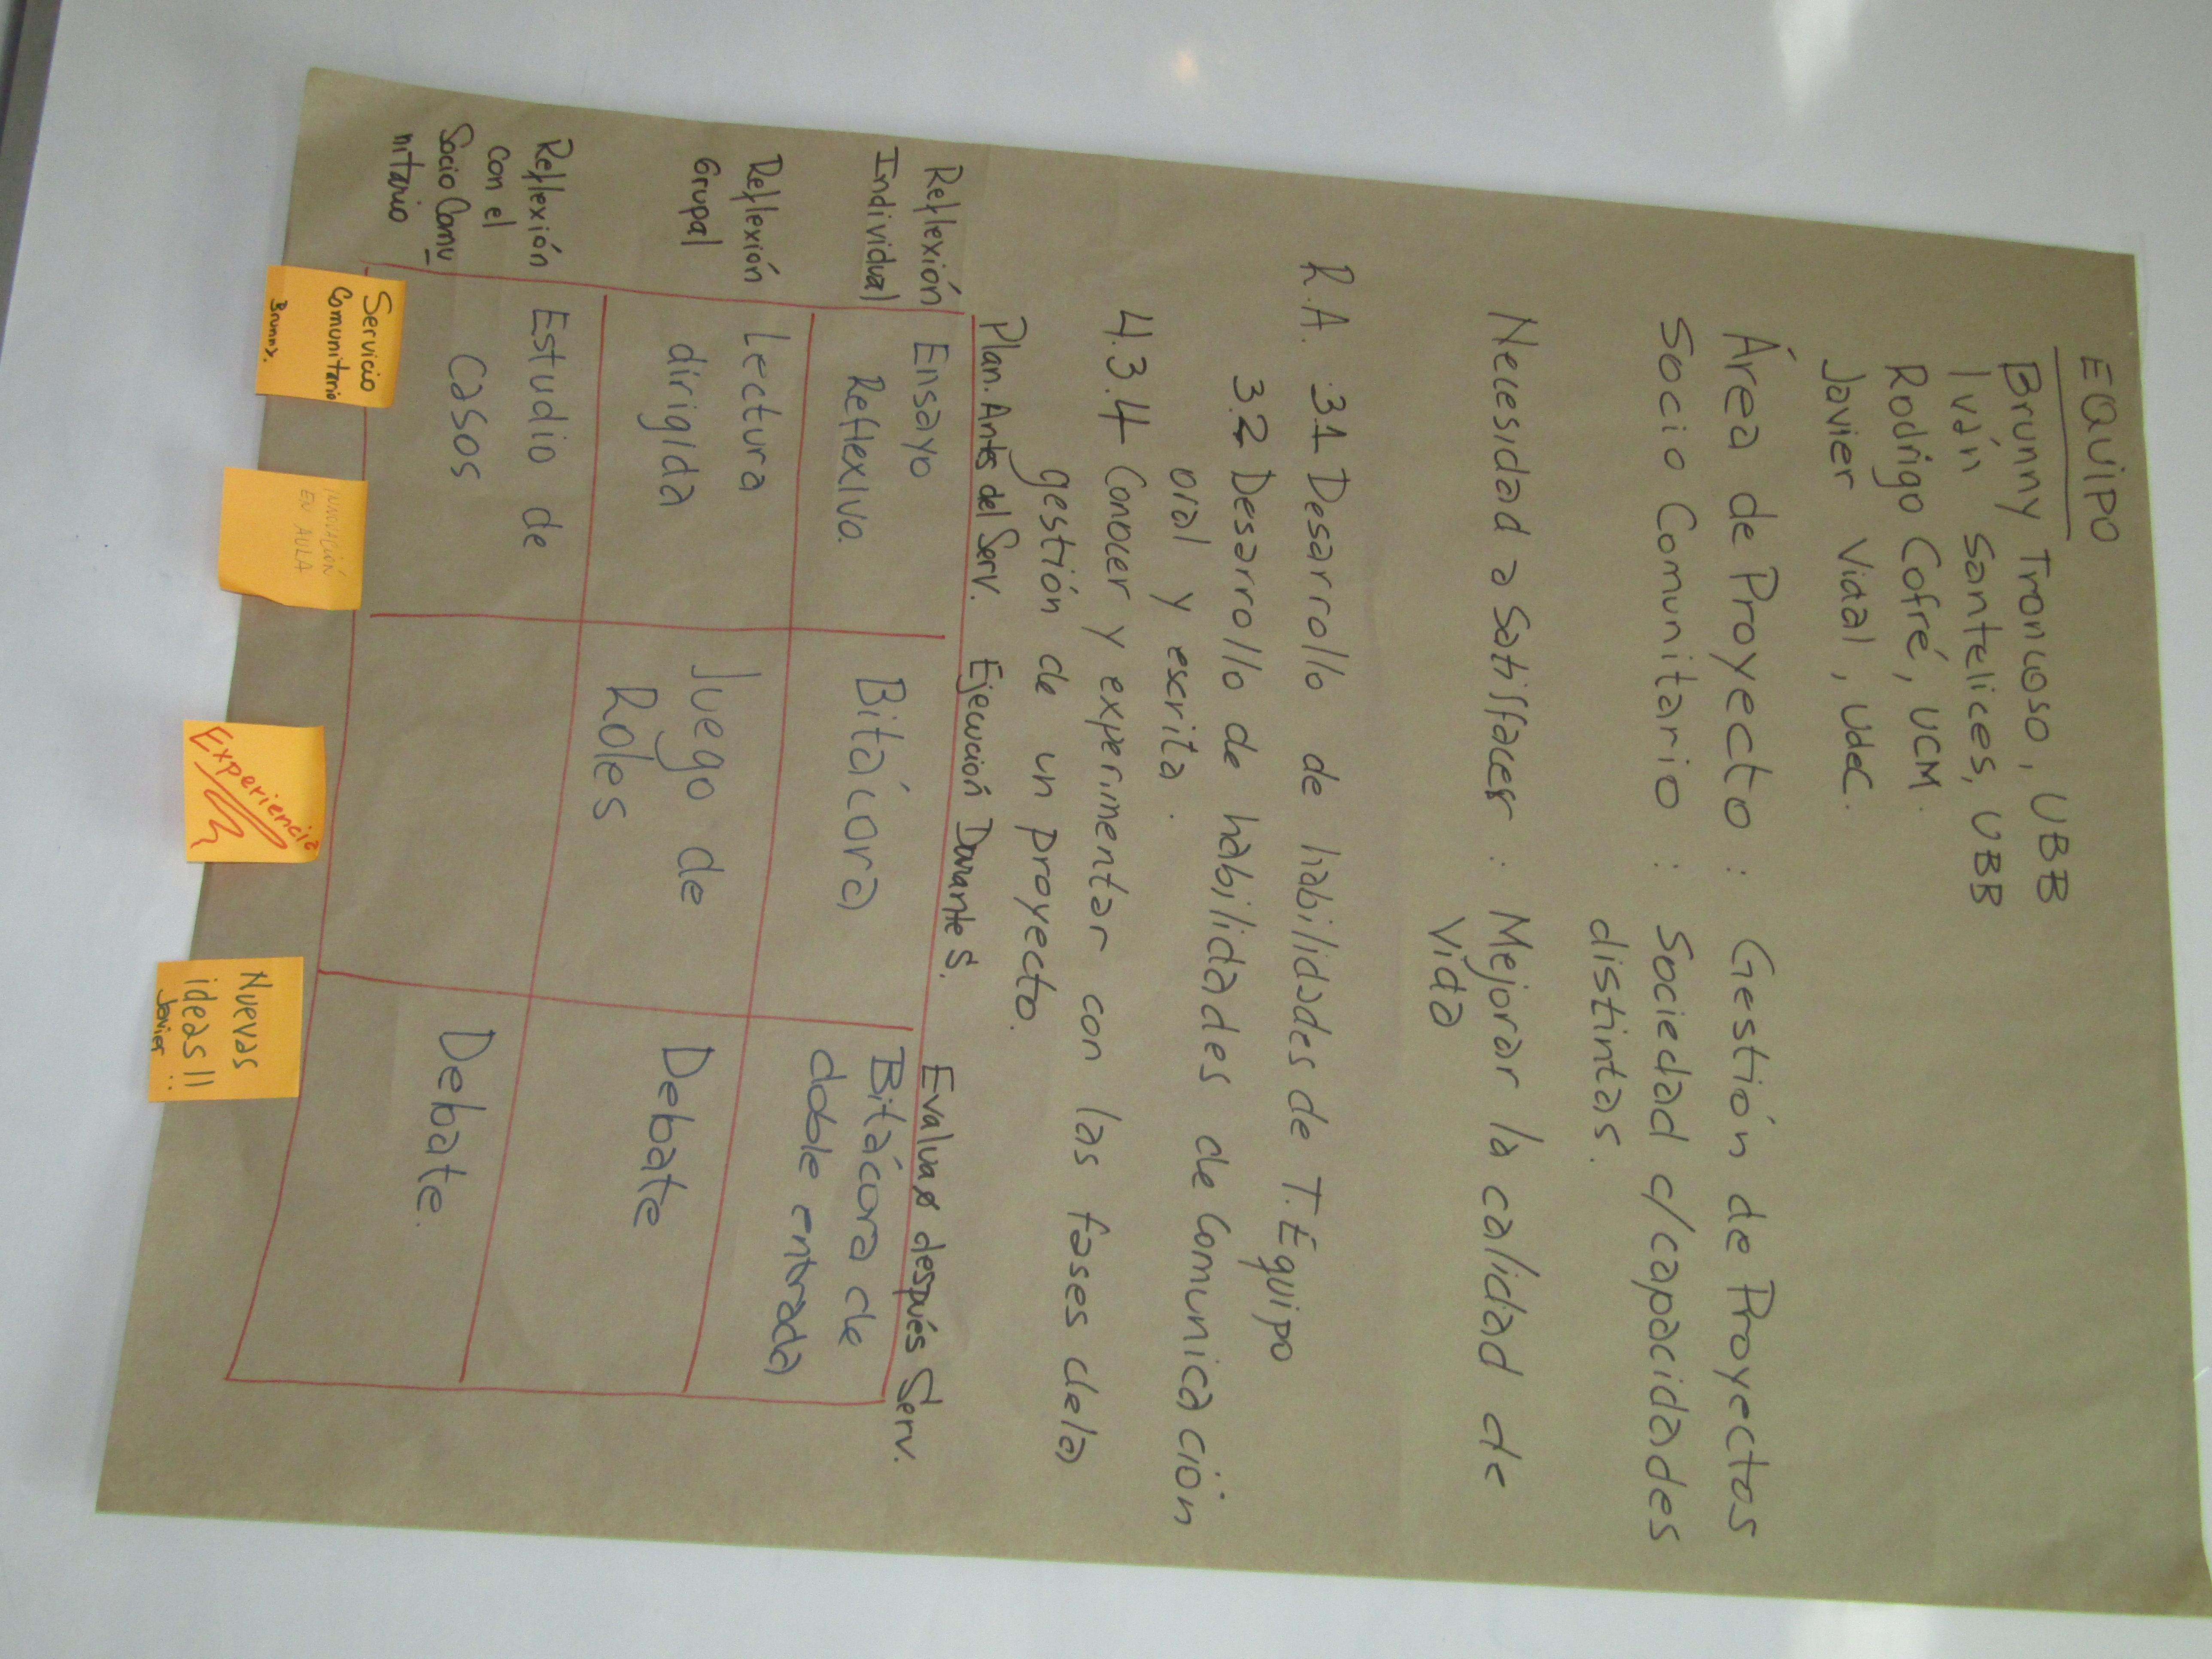 EQUIPO
Brunny Troncoso, UBB
Iván Santelices, UBB
Rodrigo Cofré, UCM.
Javier Vidal, UdeC.
Área de Proyecto : Gestión de Proyectos
Socio Comunitario : Sociedad c/capacidades
distintas.
Necesidad a Satisfacer : Mejorar la calidad de
vida
R.A. 3.1 Desarrollo de habilidades de T. Equipo
3.2 Desarrollo de habilidades de Comunicación
oral y escrita.
4.3.4 Conocer y experimentar con las fases dela
gestión de un proyecto.
Plan. Antes del Serv. Ejecución Durante S. Evaluar después Serv.
Reflexión
Individual
Ensayo
Reflexivo.
Bitácora
Bitácora de
doble entrada
Reflexión
Grupal
Lectura
dirigida
Juego de
Roles
Debate
Reflexión
con el
Socio Comu
nitario
Estudio de
casos
Debate.
Servicio
Comunitario
Brunny.
EN AULA
Experiencia
Nuevas
ideas!!
Javier